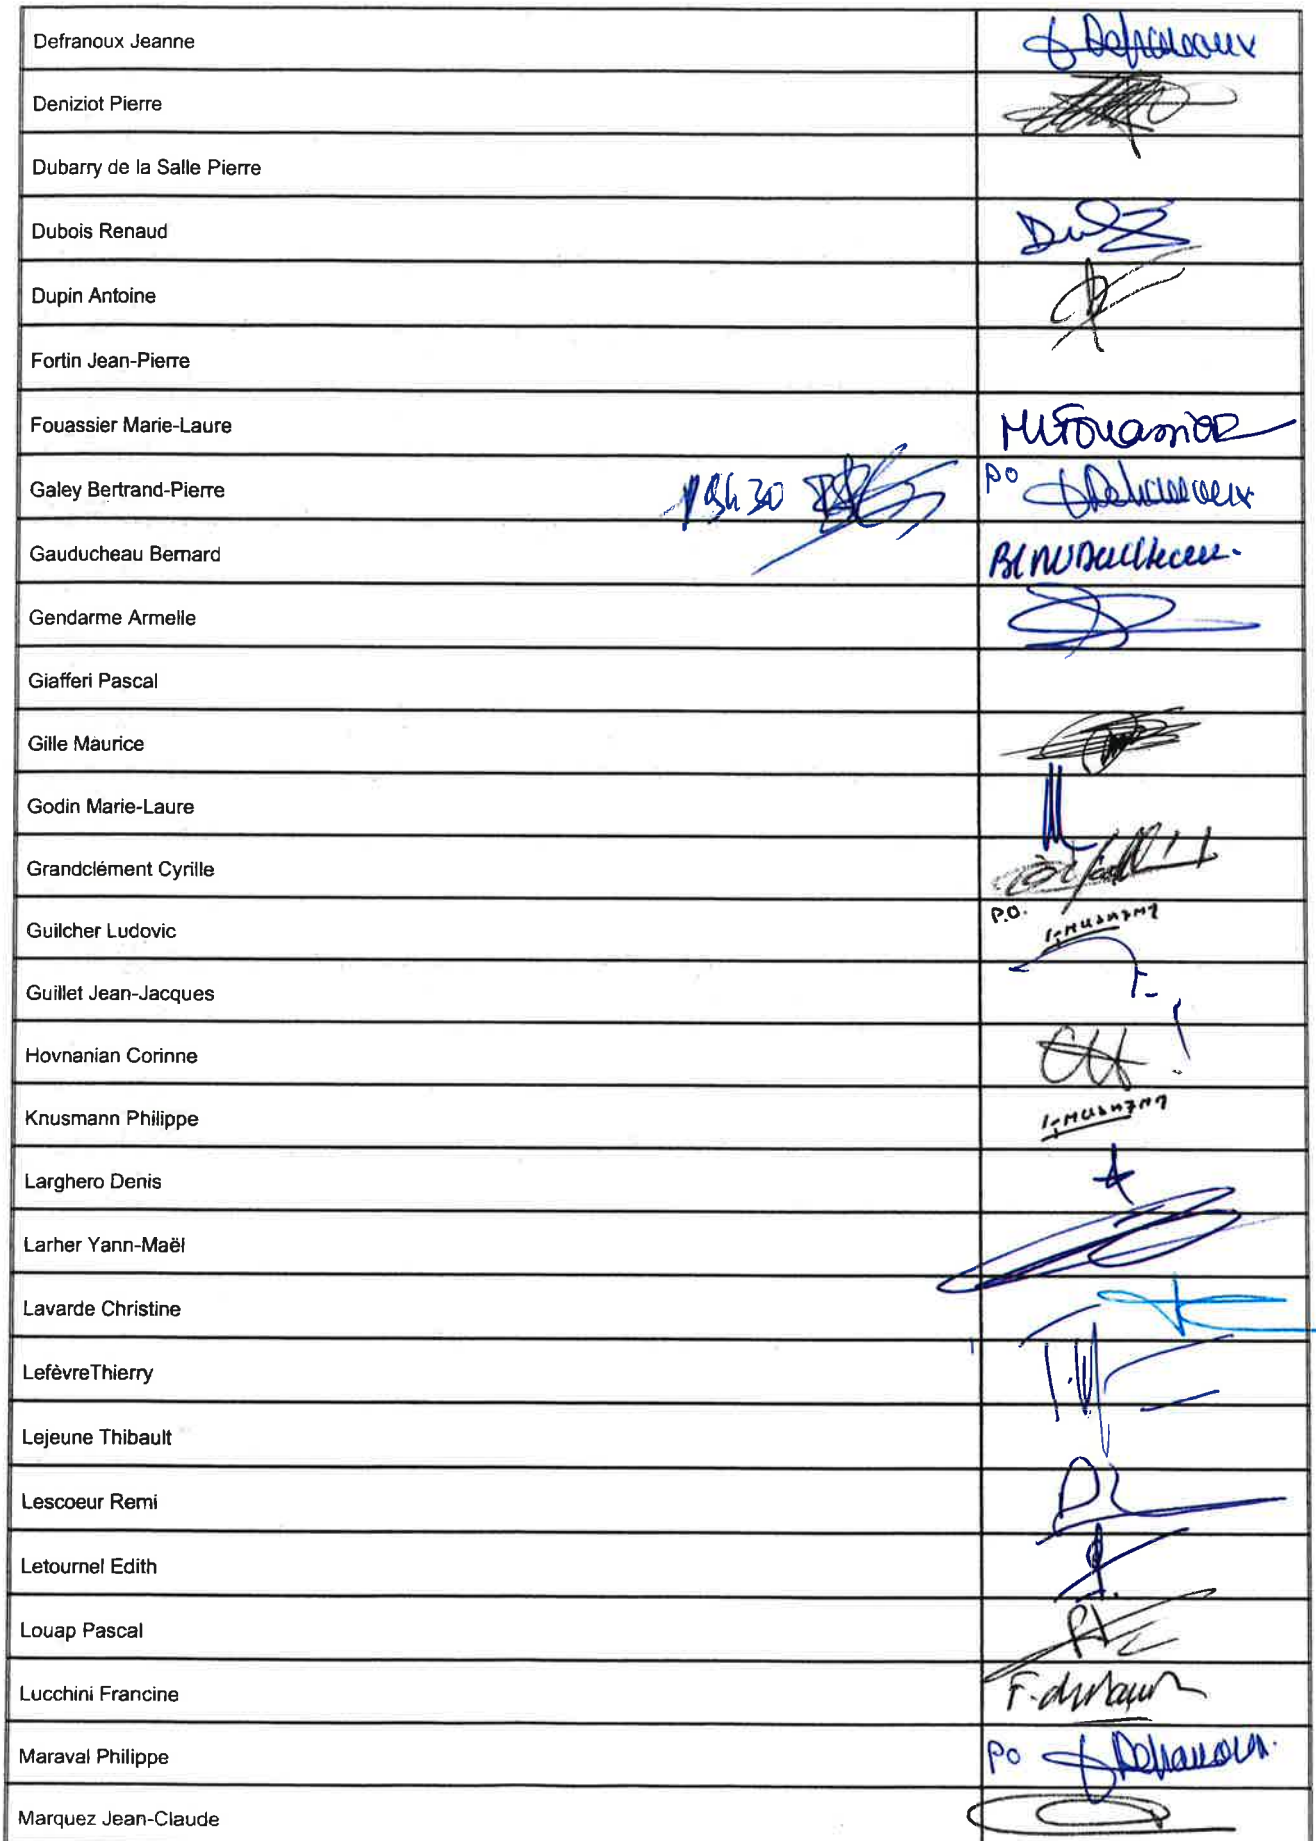 Defranoux Jeanne J Defranoux
Deniziot Pierre
Dubarry de la Salle Pierre
Dubois Renaud
Dupin Antoine
Fortin Jean-Pierre
Fouassier Marie-Laure ML Fouassier
Galey Bertrand-Pierre 19h30 PO J Defranoux
Gauducheau Bernard
Gendarme Armelle
Giafferi Pascal
Gille Maurice
Godin Marie-Laure
Grandclément Cyrille
Guilcher Ludovic P.O.
Guillet Jean-Jacques
Hovnanian Corinne CH
Knusmann Philippe
Larghero Denis
Larher Yann-Maël
Lavarde Christine
LefèvreThierry
Lejeune Thibault
Lescoeur Remi
Letournel Edith
Louap Pascal
Lucchini Francine
Maraval Philippe PO J Defranoux
Marquez Jean-Claude